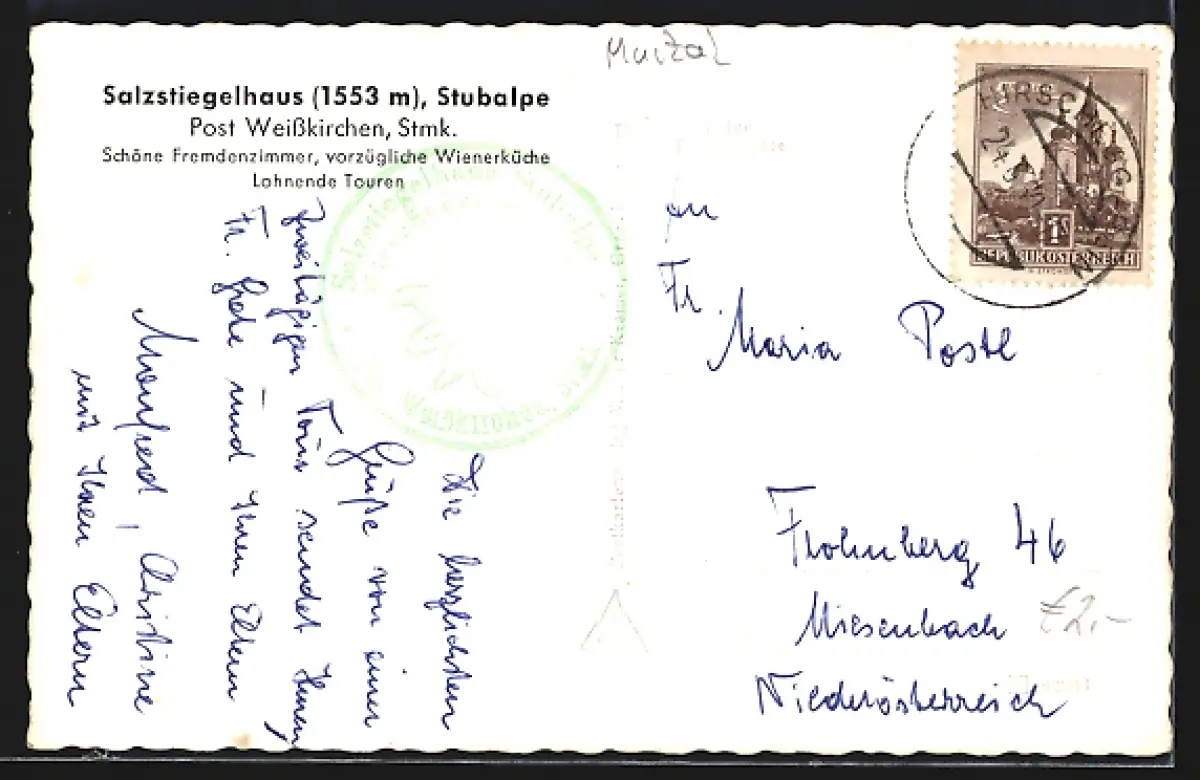 Salzstiegelhaus (1553 m), Stubalpe
Post Weißkirchen, Stmk.
Schöne Fremdenzimmer, vorzügliche Wienerküche
Lohnende Touren
Die herzlichsten
Grüße von einer
zweitägigen Tour sendet Ihnen,
Fr. Grete und Ihren Eltern
Manfred, Christine
mit Ihren Eltern
REPUBLIK ÖSTERREICH
1S
Salzstiegelhaus Stubalpe
An
Fr.
Maria Postl
Frohnberg 46
Miesenbach
Niederösterreich
€2.-